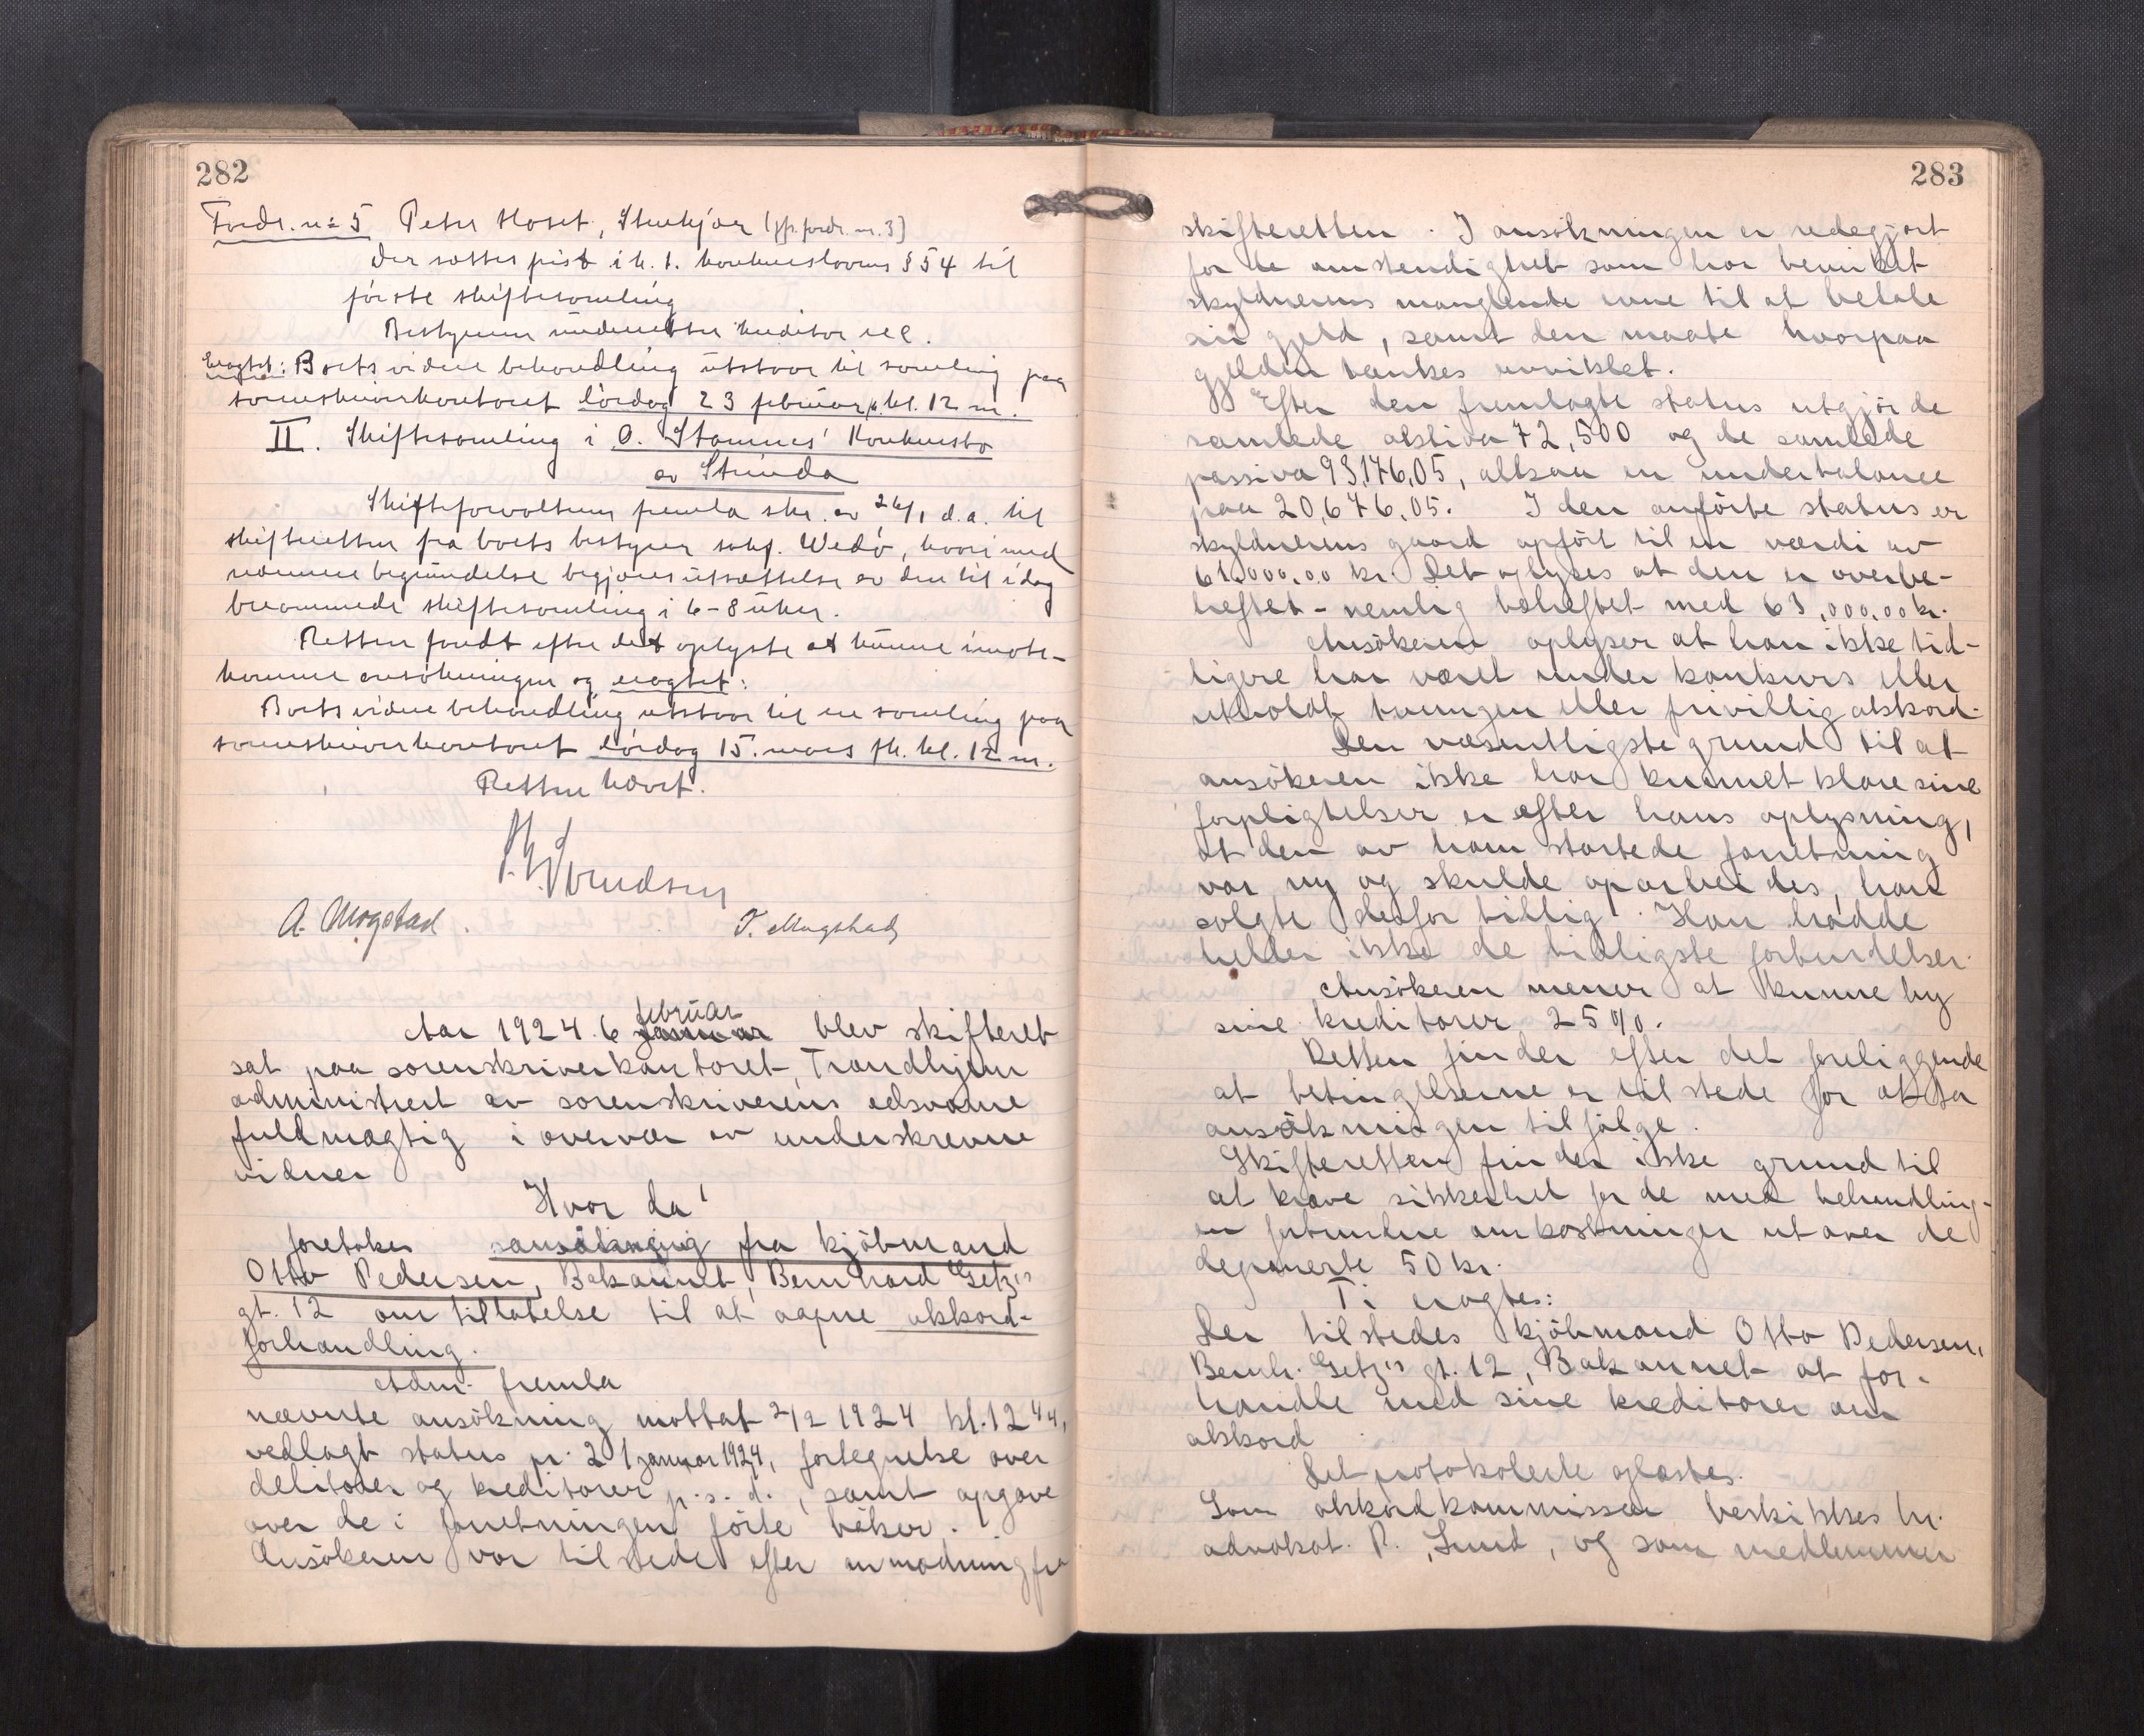 282
Fordr. no 5 Peter Hoset, Stenkjær (jfr. fordr. nr. 3)
Der sættes frist i h. t. konkurslovens § 54 til
første skiftesamling
Bestyreren underretter kreditor rel.
Eragtet: Boets videre behandling utstaar til samling paa
sorenskriverkontoret lördag 23 februar fk. kl. 12 m.
II. Skiftesamling i O. Stamnes' Konkursbo
av Strinda
Skifteforvalteren fremla skr. av 26/1 d.a. til
skifteretten fra boets bestyrer sakf. Wedö, hvori med
nærmere begrundelse begjæres utsættelse av den til idag
berammede skiftesamling i 6-8 uker.
Retten fandt efter det oplyste at kunne imøte-
komme ansökningen og eragtet:
Boets videre behandling utstaar til en samling paa
sorenskriverkontoret lördag 15. mars fk. kl. 12 m.
Retten hævet.
Svendsen
A. Mogstad. T. Mogstad
februar
Aar 1924 6 januar blev skifteret
sat paa sorenskriverkontoret, Trondhjem
administrert av sorenskriverens edsvorne
fuldmægtig i overvær av underskrevne
vidner
Hvor da'
foretokes ansökning fra kjöbmand
Otto Pedersen, Bakaunet, Bernhard Getz"
gt. 12 om tillatelse til at aapne akkord-
forhandling.
Adm. fremla
nævnte ansökning mottat 2/2 1924 kl. 12 44,
vedlagt status pr. 21 januar 1924, fortegnelse over
debitorer og kreditorer p. s. d., samt opgave
over de i forretningen förte böker.
Ansökeren var tilstede efter anmodning fra
283
skifteretten. I ansökningen er redegjort
for de omstendighet som har bevirket
skyldnerens manglende evne til at betale
sin gjæld, samt den maate hvorpaa
gjelden tænkes avviklet.
Efter den fremlagte status utgjör de
samlede aktiva 72,500 og de samlede
passiva 93,176,05, altsaa en underbalance
paa 20,676,05. I den anförte status er
skyldnerens gaard opfört til en værdi av
61,000,00 kr. Det oplyses at den er overbe-
heftet - nemlig beheftet med 63,000,00 kr.
Ansökeren oplyser at han ikke tid-
ligere har været under konkurs eller
utholdt tvungen eller frivillig akkord.
Den væsentligste grund til at
ansökeren ikke har kunnet klare sine
forpligtelser er efter hans oplysning,
at den av ham startede forretning
var ny og skulde oparbeides, han
solgte derfor billig. Han hadde
heller ikke de billigste forbindelser.
Ansökeren mener at kunne by
sine kreditorer 25 %.
Retten finder efter det foreliggende
at betingelserne er tilstede for at ta
ansökningen tilfölge.
Skifteretten finder ikke grund til
at kræve sikkerhet for de med behandling-
en forbundne omkostninger utover de
deponerte 50 kr.
Ti eragtes:
Der tilstedes kjöbmand Otto Pedersen,
Bernh. Getz" gt. 12, Bakaunet at for-
handle med sine kreditorer om
akkord.
Det protokolerte oplæstes.
Som akkordkommissær beskikkes hr.
advokat. P. Lund, og som medlemmer